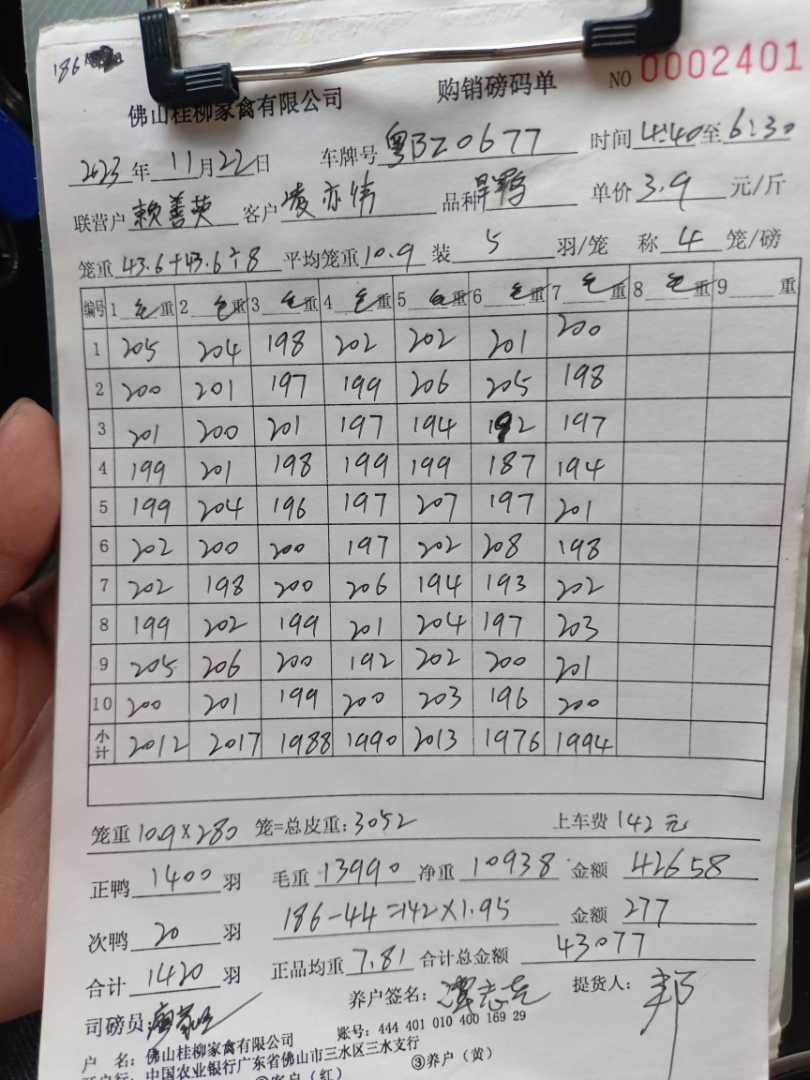 186
佛山桂柳家禽有限公司 购销磅码单 NO 0002401
2023年11月22日 车牌号粤BZ0677 时间4:40至6:30
联营户赖善英 客户凌亦伟 品种 单价3.9元/斤
笼重43.6+43.6÷8 平均笼重10.9装5羽/笼 称4笼/磅
编号 1毛重 2毛重 3毛重 4毛重 5毛重 6毛重 7毛重 8毛重 9重
1 205 204 198 202 202 201 200
2 200 201 197 199 206 205 198
3 201 200 201 197 194 192 197
4 199 201 198 199 199 187 194
5 199 204 196 197 207 197 201
6 202 200 200 197 202 208 198
7 202 198 200 206 194 193 202
8 199 202 199 201 204 197 203
9 205 206 200 192 202 200 201
10 200 201 199 200 203 196 200
小计 2012 2017 1988 1990 2013 1976 1994
笼重10.9×280笼=总皮重:3052 上车费142元
正鸭1400羽 毛重13990净重10938 金额42658
次鸭20羽 186-44=142×1.95 金额277
合计1420羽 正品均重7.81合计总金额43077
养户签名: 提货人:邦
司磅员:
户 名:佛山桂柳家禽有限公司 账号:444 401 010 400 169 29
开户行:中国农业银行广东省佛山市三水区三水支行
②客户(红) ③养户(黄)